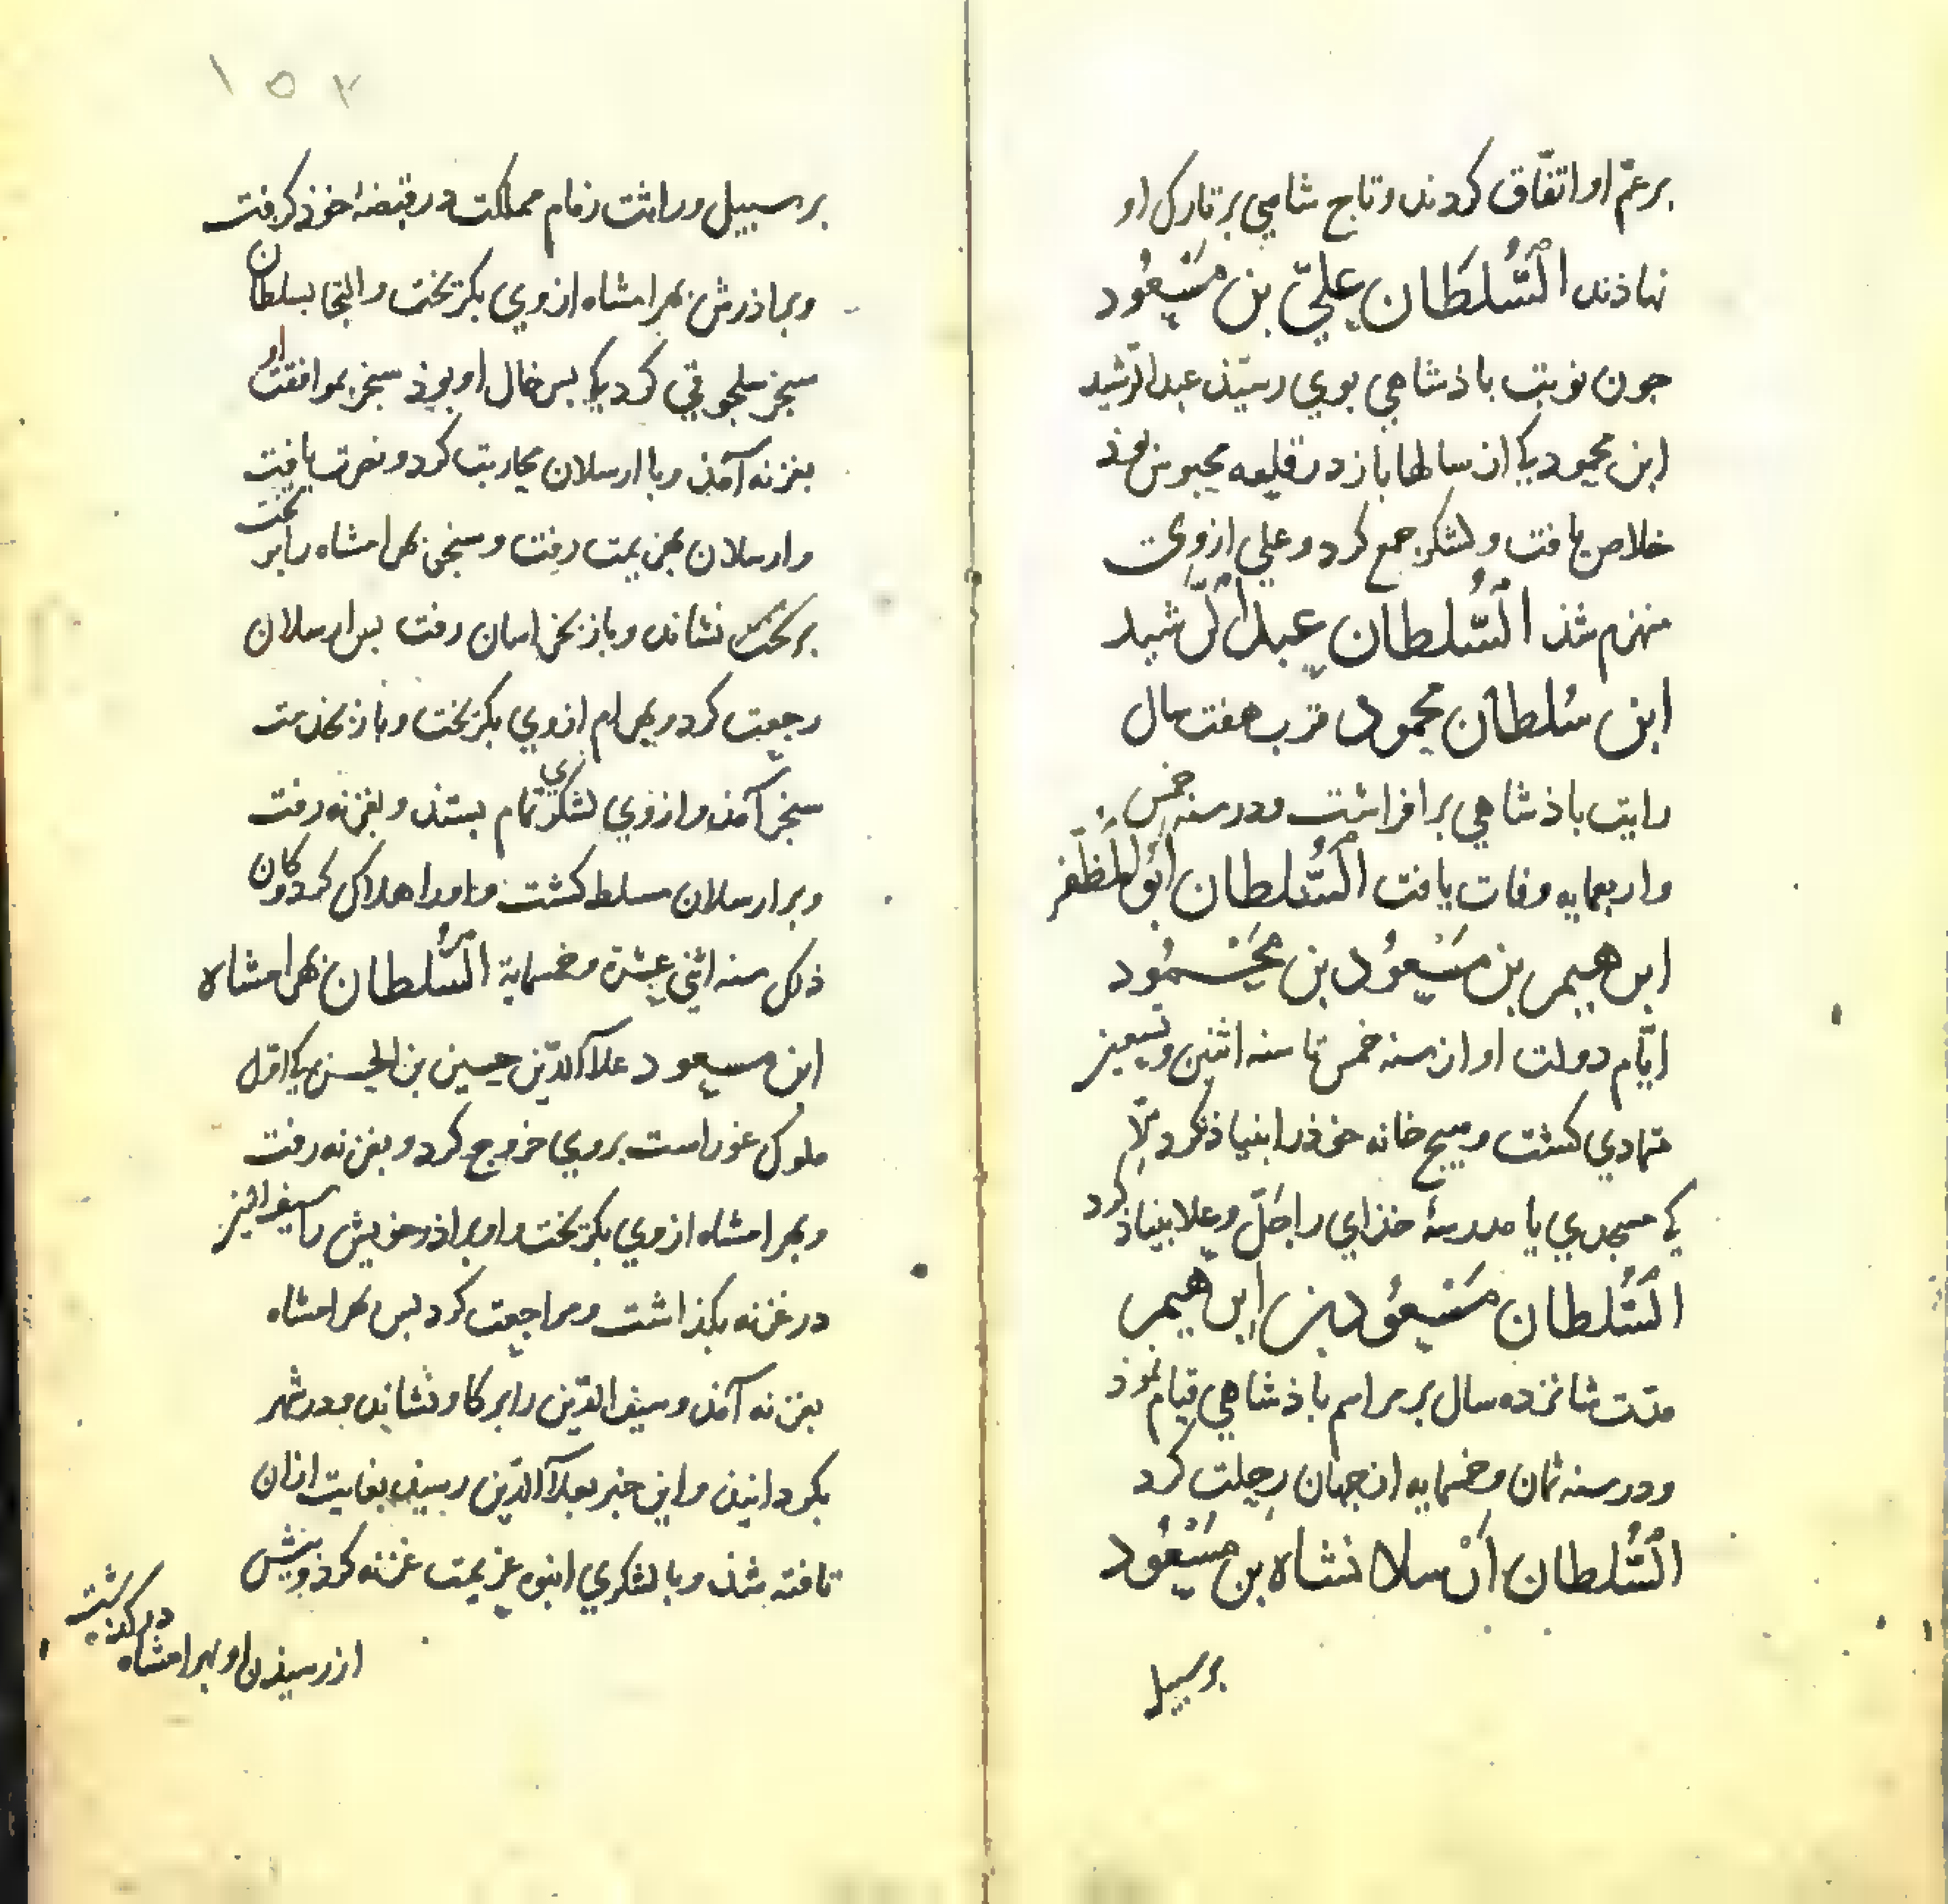 برعمّ او اتفّاق کردند و تاج شاهي بر تارک او
نهاذند السُّلطان عليّ بن مَسْعُود
جون نوبت باذشاهي بوي رسيذ عبدالرّشيد
ابن محمود کي از سالها باز در قلعه محبوس بوذ
خلاص يافت و لشکر جمع کرد و علي از وي
منهزم شذ السُّلطان عبدالرّشيد
ابن سُلطان محمود قرب هفت سال
رايت باذشاهي برافراشت و در سنه خمس
و اربعمايه وفات يافت السُّلطان ابُوالمظَفّر
ابرهيم بن مَسْعُود بن مَحْمُود
ايّام دولت او از سنه خمس تا سنه اثنين و تسعين
تمادي کشت و هيج خانه خوذ را بنياذ نکرد الّا
کي مسجدي يا مدرسهٔ خذاي را جلّ و علا بنياذ کرد
السُّلطان مَسْعُود بن ابرهيم
مدّت شانزده سال بر مراسم باذشاهي قيام نموذ
و در سنه ثمان و خمسمايه از جهان رحلت کرد
السُّلطان ارْسلانشاه بن مَسْعُود
بر سبيل
۱۵۲
بر سبيل وراثت زمام مملکت در قبضهٔ خوذ کرفت
و براذرش بهرامشاه از وي بکريخت و التجا بسلطان
سنجر سلجوقي کرد کي بسر خال او بوذ سنجر بموافقت او
بغزنه آمذ و با ارسلان محاربت کرد و نصرت يافت
و ارسلان بهزيمت رفت و سنجر بهرامشاه را بر تخت
بر تخت نشاند و باز بخراسان رفت بس ارسلان
رجعت کرد و بهرام از وي بکريخت و باز بخذمت
سنجر آمذ و از وي لشکري تمام بستذ و بغزنه رفت
و بر ارسلان مسلط کشت و اورا هلاک کرد و کان
ذلک سنه اثني عشرة و خمسماية السُّلطان بهرامشاه
ابن مسعود علاآلدّين حسين بن الحسن کي اوّل
ملوک غور است بروي خروج کرد و بغزنه رفت
و بهرامشاه از وي بکريخت و او براذر خويش را سيف الدين
در غزنه بکذاشت و مراجعت کرد بس بهرامشاه
بغزنه آمذ و سيف الدّين را بر کاو نشاند و در شهر
بکردانيذ و اين خبر بعلاآلدّين رسيذ بغايت ازان
تافته شذ و با لشکري انبوه عزيمت غزنه کرد و بيش
از رسيذن او بهرامشاه در کذشت